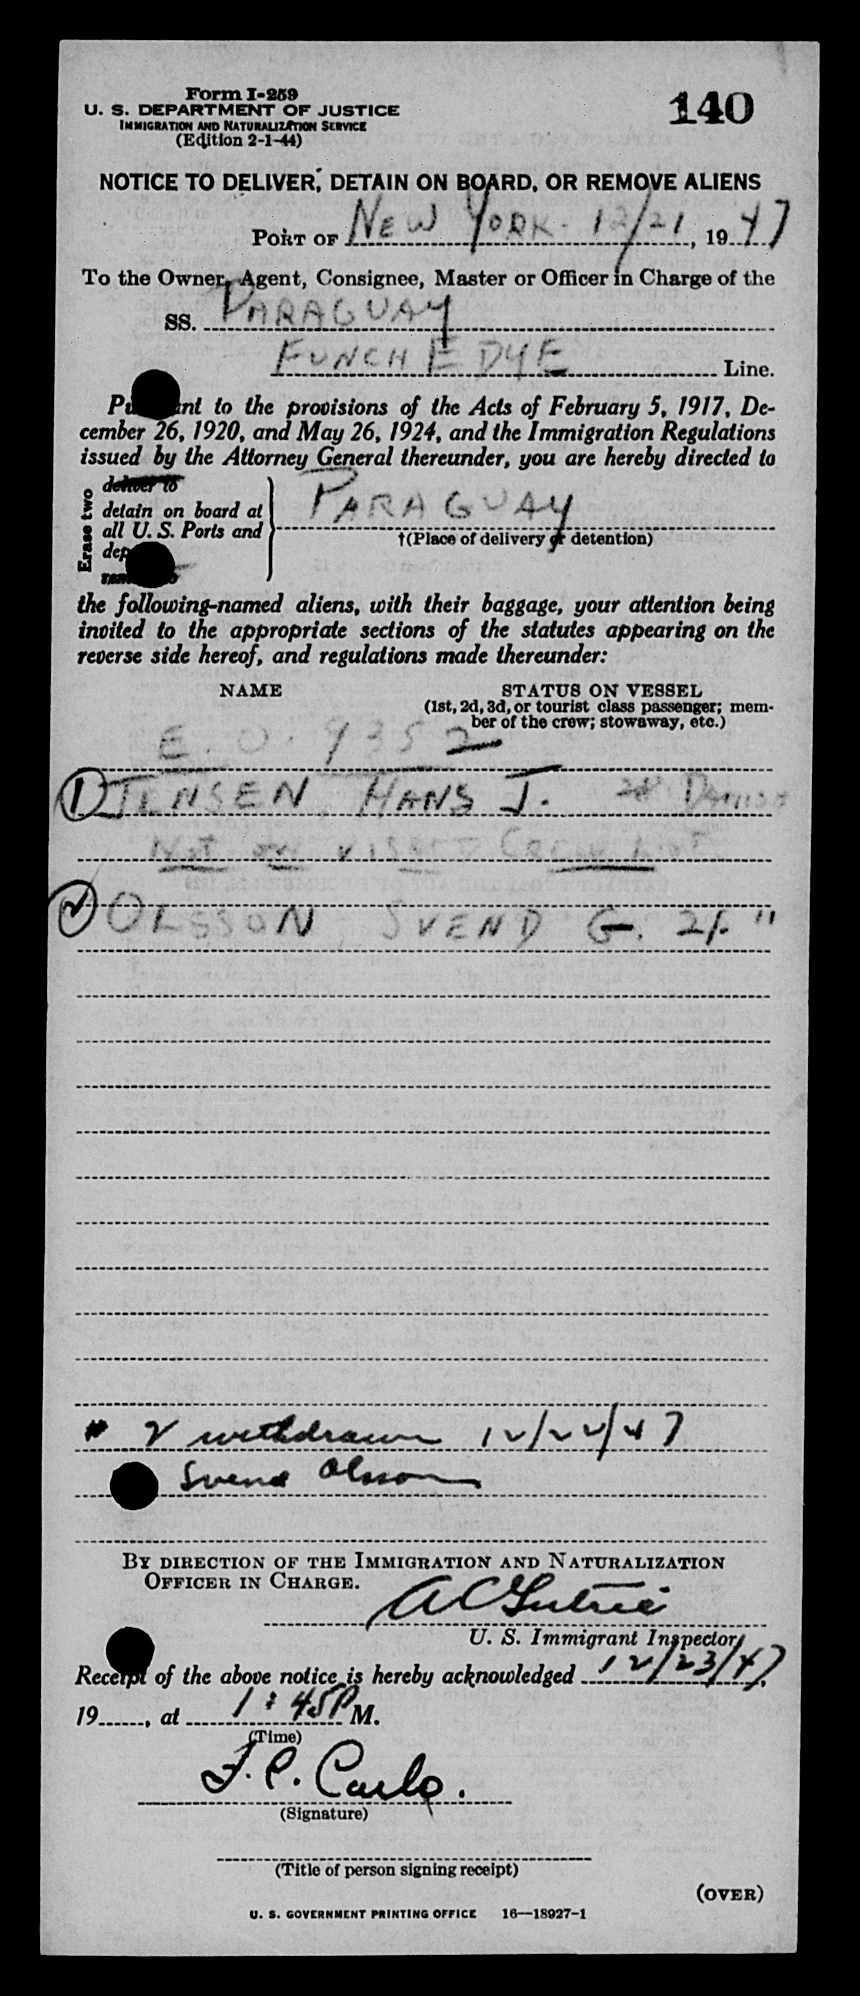 Form I-259
U. S. DEPARTMENT OF JUSTICE
IMMIGRATION AND NATURALIZATION SERVICE
(Edition 2-1-44)
140
NOTICE TO DELIVER, DETAIN ON BOARD, OR REMOVE ALIENS
PORT OF NEW YORK - 12/21, 1947
To the Owner, Agent, Consignee, Master or Officer in Charge of the
SS. PARAGUAY
FUNCH EDYE Line.
nt to the provisions of the Acts of February 5, 1917, De-
cember 26, 1920, and May 26, 1924, and the Immigration Regulations
issued by the Attorney General thereunder, you are hereby directed to
Erase two
deliver to
detain on board at
all U. S. Ports and
PARAGUAY
†(Place of delivery or detention)
the following-named aliens, with their baggage, your attention being
invited to the appropriate sections of the statutes appearing on the
reverse side hereof, and regulations made thereunder:
NAME STATUS ON VESSEL
(1st, 2d, 3d, or tourist class passenger; mem-
ber of the crew; stowaway, etc.)
E. O. 9352
1 JENSEN, HANS J. 28 DANISH
NOT ON VISAED CREW LIST
2 OLSSON, SVEND G. 21. "
# 2 withdrawn 12/22/47
Svend Olsson
BY DIRECTION OF THE IMMIGRATION AND NATURALIZATION
OFFICER IN CHARGE.
U. S. Immigrant Inspector.
Receipt of the above notice is hereby acknowledged 12/23/47,
19......, at 1:45 P M.
(Time)
(Signature)
(Title of person signing receipt)
(OVER)
U. S. GOVERNMENT PRINTING OFFICE 16—18927-1